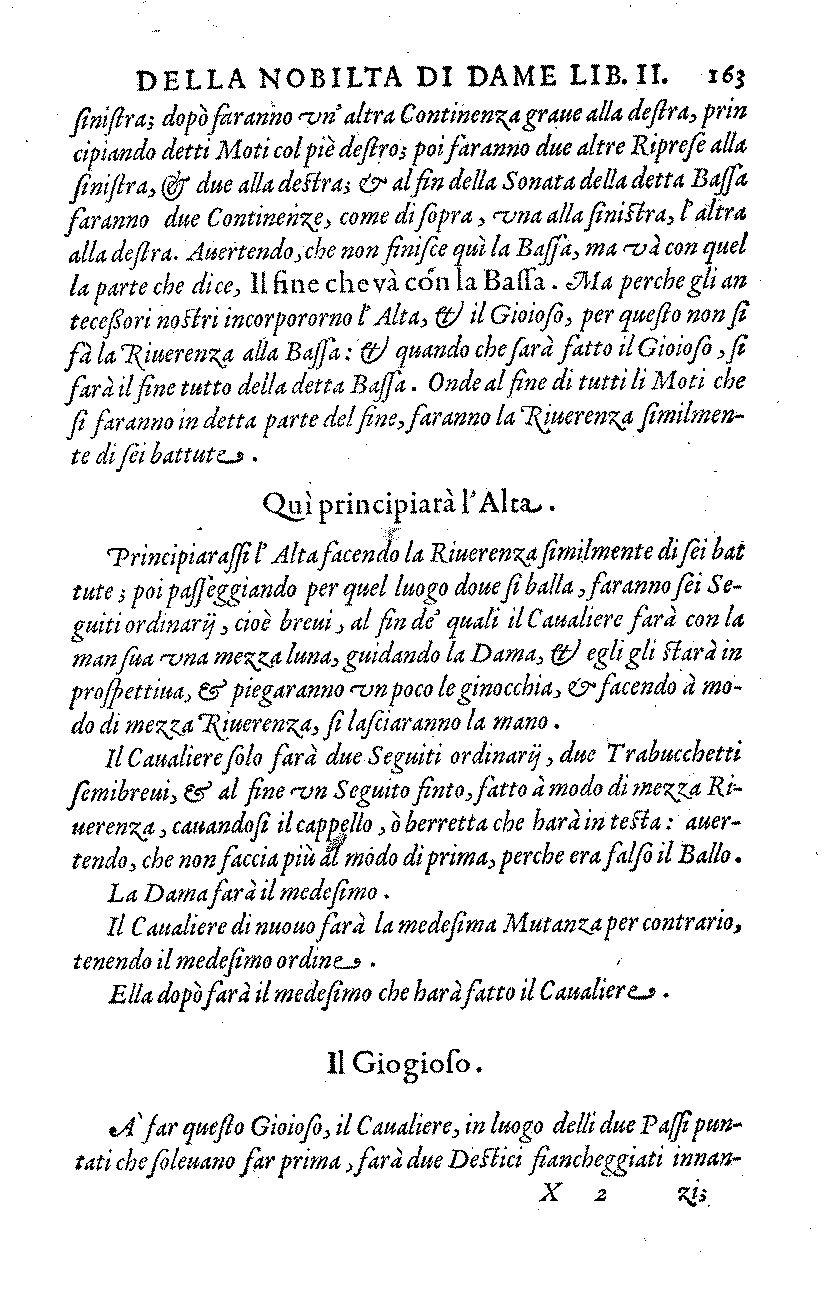 DELLA NOBILTA DI DAME LIB. II. 163
ſiniſtra; dopò faranno vn' altra Continenza graue alla deſtra, prin
cipiando detti Moti col piè deſtro; poi faranno due altre Ripreſe alla
ſiniſtra, & due alla deſtra; & al fin della Sonata della detta Baſſa
faranno due Continenze, come di ſopra, vna alla ſiniſtra, l'altra
alla deſtra. Auertendo, che non finiſce quì la Baſſa, ma và con quel
la parte che dice, Il fine che và con la Baſſa. Ma perche gli an
teceſſori noſtri incorpororno l'Alta, & il Gioioſo, per queſto non ſi
fà la Riuerenza alla Baſſa: & quando che ſarà fatto il Gioioſo, ſi
farà il fine tutto della detta Baſſa. Onde al fine di tutti li Moti che
ſi faranno in detta parte del fine, faranno la Riuerenza ſimilmen-
te di ſei battute.
Quì principiarà l'Alta.
Principiaraſſi l'Alta facendo la Riuerenza ſimilmente di ſei bat
tute; poi paſſeggiando per quel luogo doue ſi balla, faranno ſei Se-
guiti ordinarij, cioè breui, al fin de' quali il Caualiere farà con la
man ſua vna mezza luna, guidando la Dama, & egli gli ſtarà in
proſpettiua, & piegaranno vn poco le ginocchia, & facendo à mo-
do di mezza Riuerenza, ſi laſciaranno la mano.
Il Caualiere ſolo farà due Seguiti ordinarij, due Trabucchetti
ſemibreui, & al fine vn Seguito finto, fatto à modo di mezza Ri-
uerenza, cauandoſi il cappello, ò berretta che harà in teſta: auer-
tendo, che non faccia più al modo di prima, perche era falſo il Ballo.
La Dama farà il medeſimo.
Il Caualiere di nuouo farà la medeſima Mutanza per contrario,
tenendo il medeſimo ordine.
Ella dopò farà il medeſimo che harà fatto il Caualiere.
Il Giogioſo.
A' far queſto Gioioſo, il Caualiere, in luogo delli due Paſſi pun-
tati che ſoleuano far prima, farà due Deſtici fiancheggiati innan-
X 2 zi;